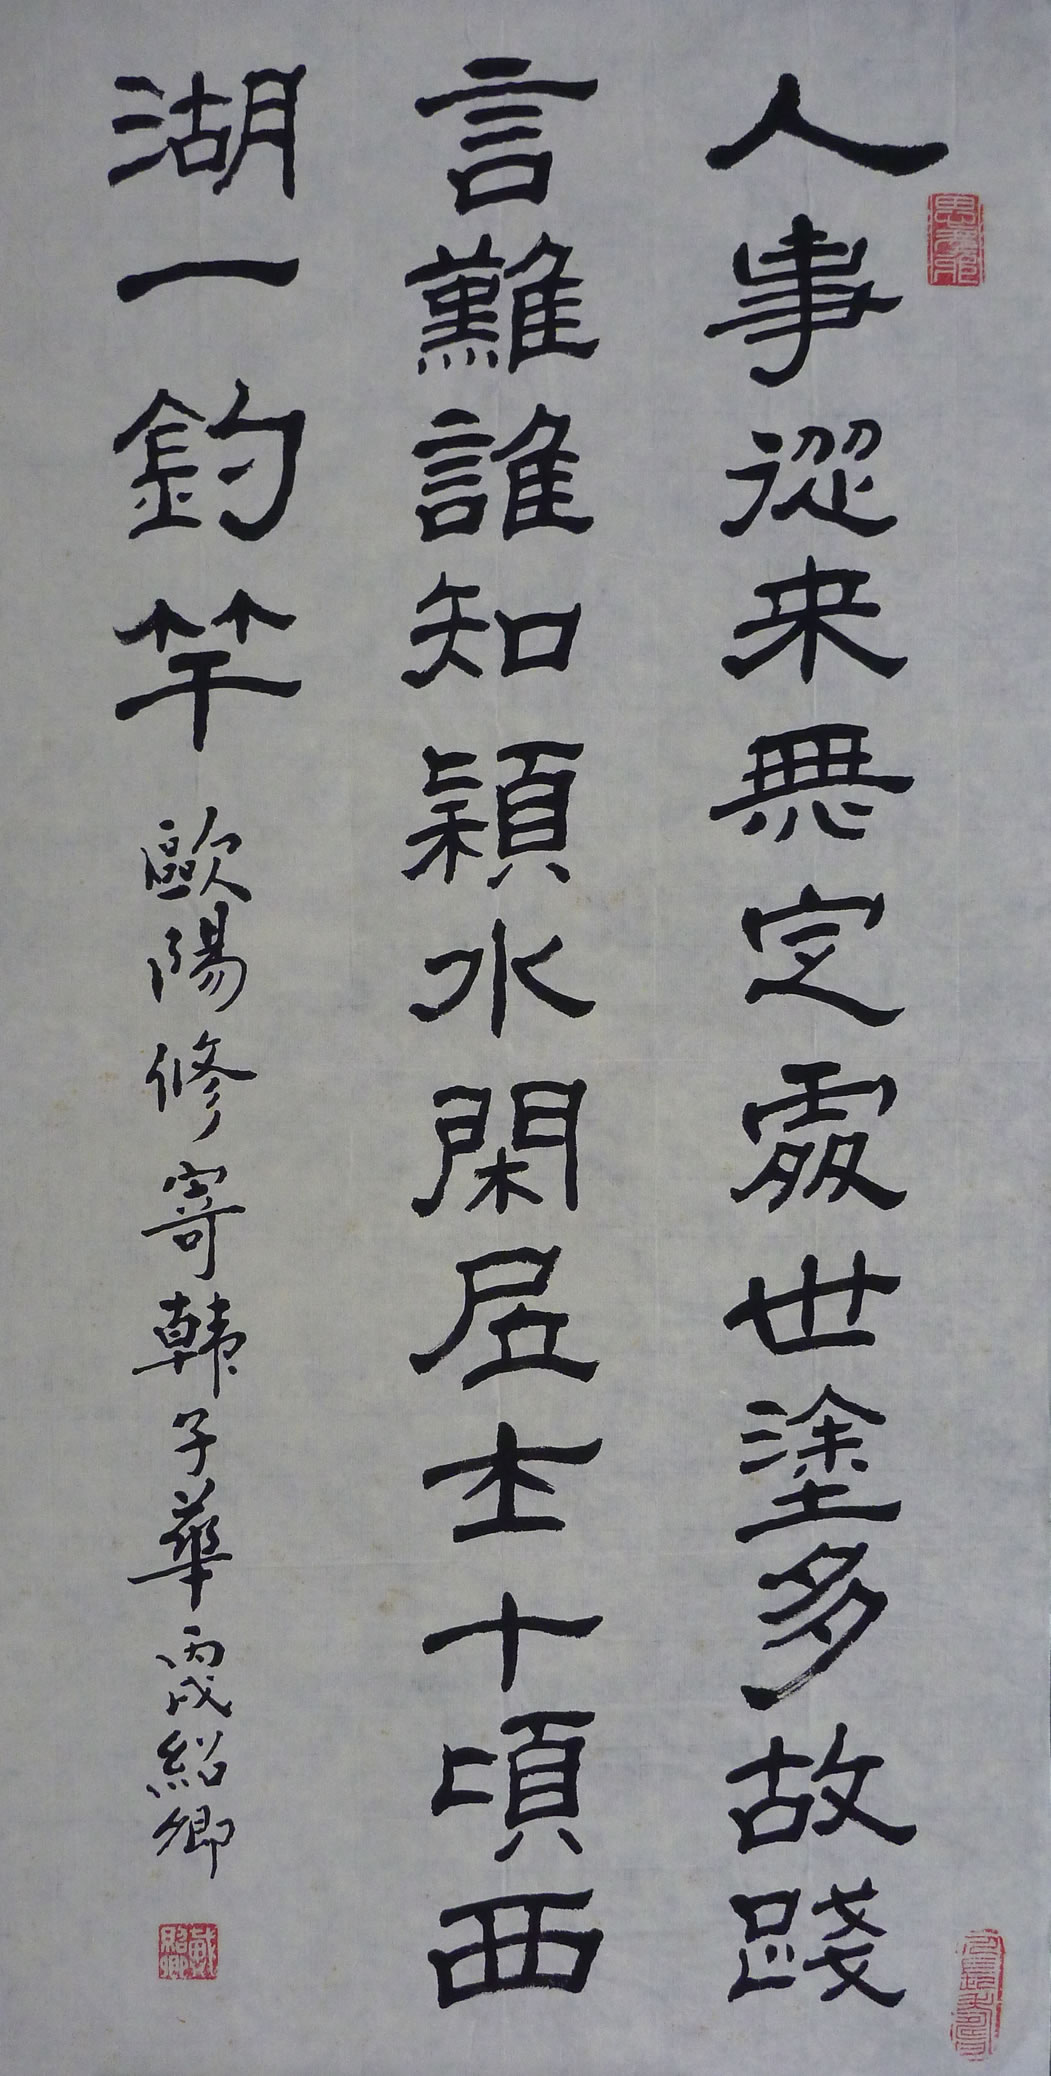 人事從来無定處世塗多故踐
言難誰知潁水閑居士十頃西
湖一釣竿
歐陽修寄韓子華丙戌紹卿
戴紹卿